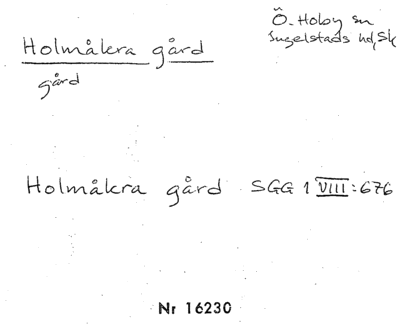 Holmåkra gård
Ö. Hoby sn
Ingelstads hd, Sk
gård
Holmåkra gård SGG 1 VIII:676
Nr 16230